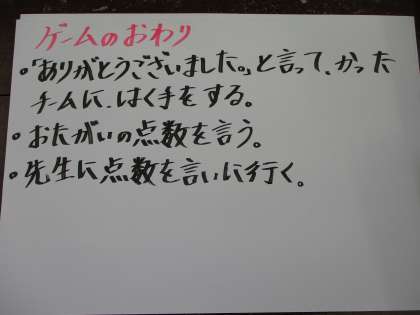 ゲームのおわり
•「ありがとうございました。」と言って、かった
チームに、はく手をする。
•おたがいの点数を言う。
•先生に点数を言いに行く。